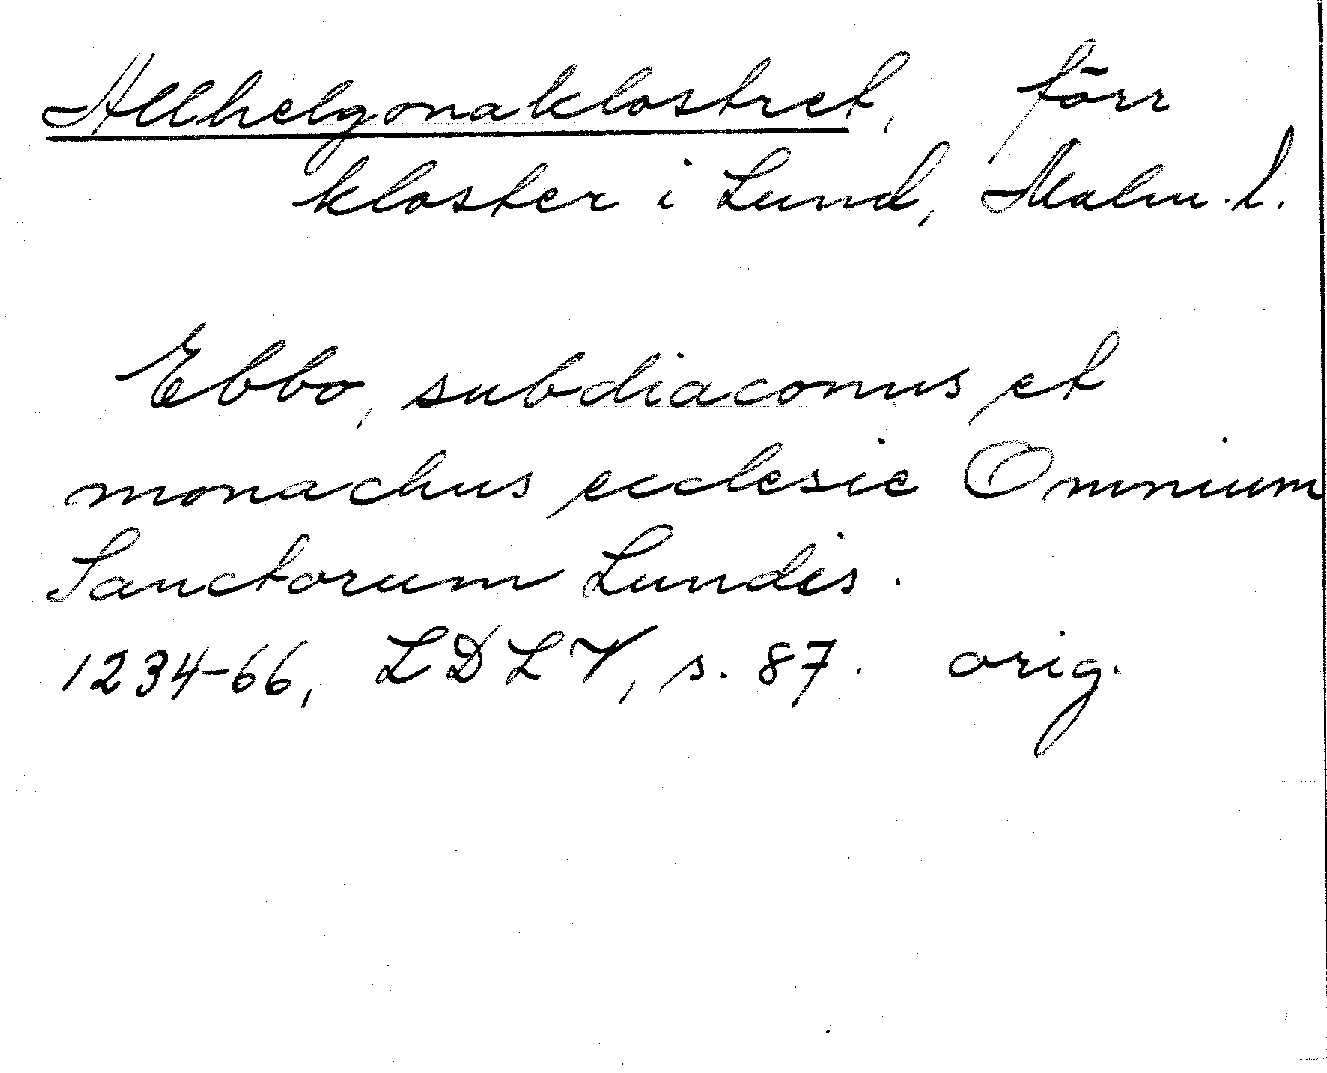 Allhelgonaklostret, förr
kloster i Lund, Malm. l.
Ebbo, subdiaconus et
monachus ecclesie Omnium
Sanctorum Lundis.
1234-66, LDLV, s. 87. orig.